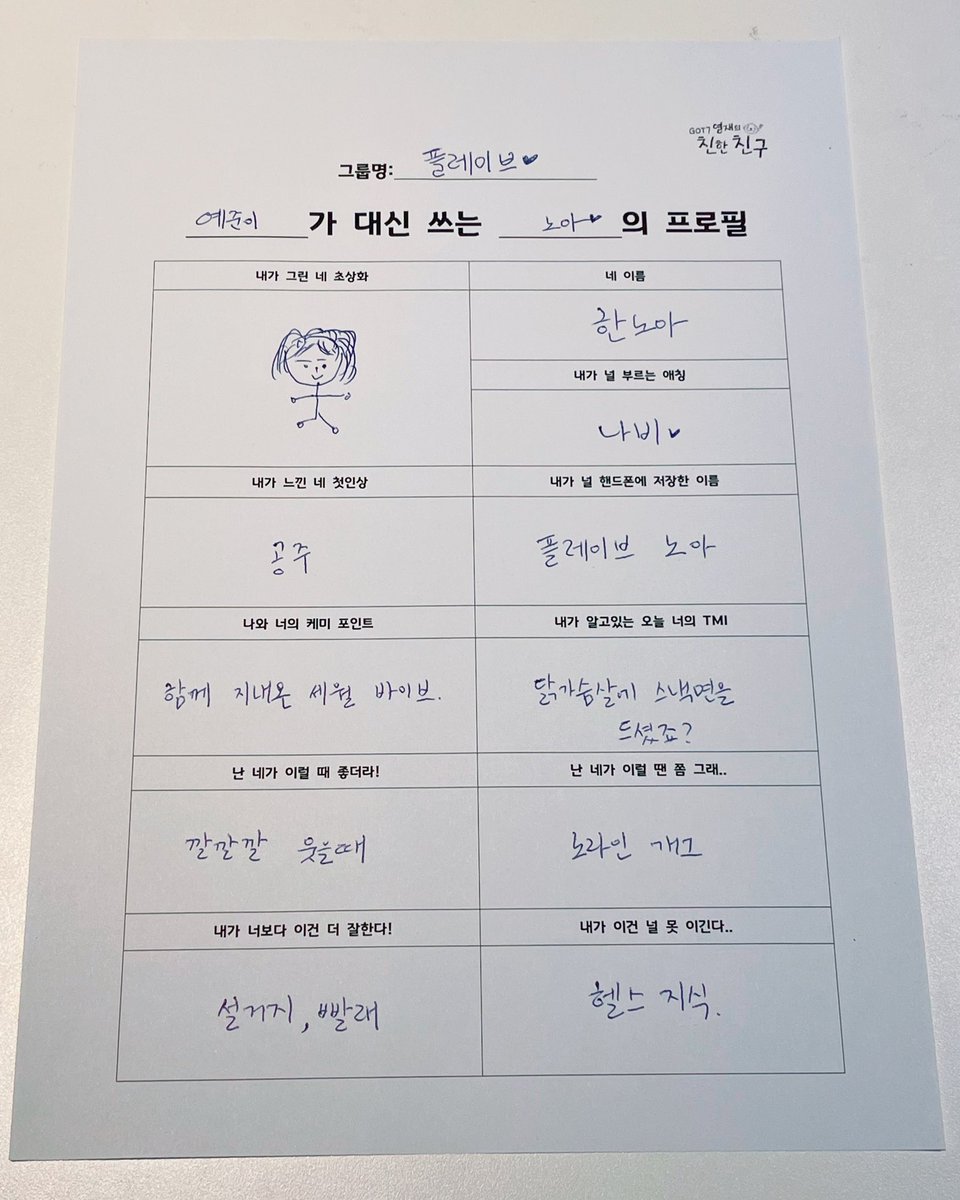 GOT7 영재의
친한 친구
그룹명: 플레이브♥
예준이 가 대신 쓰는 노아♥ 의 프로필
내가 그린 네 초상화
네 이름
한노아
내가 널 부르는 애칭
나비♥
내가 느낀 네 첫인상
내가 널 핸드폰에 저장한 이름
공주
플레이브 노아
나와 너의 케미 포인트
내가 알고있는 오늘 너의 TMI
함께 지내온 세월 바이브.
닭가슴살에 스낵면을
드셨죠?
난 네가 이럴 때 좋더라!
난 네가 이럴 땐 쫌 그래..
깔깔깔 웃을때
노라인 개그
내가 너보다 이건 더 잘한다!
내가 이건 널 못 이긴다..
설거지, 빨래
헬스 지식.